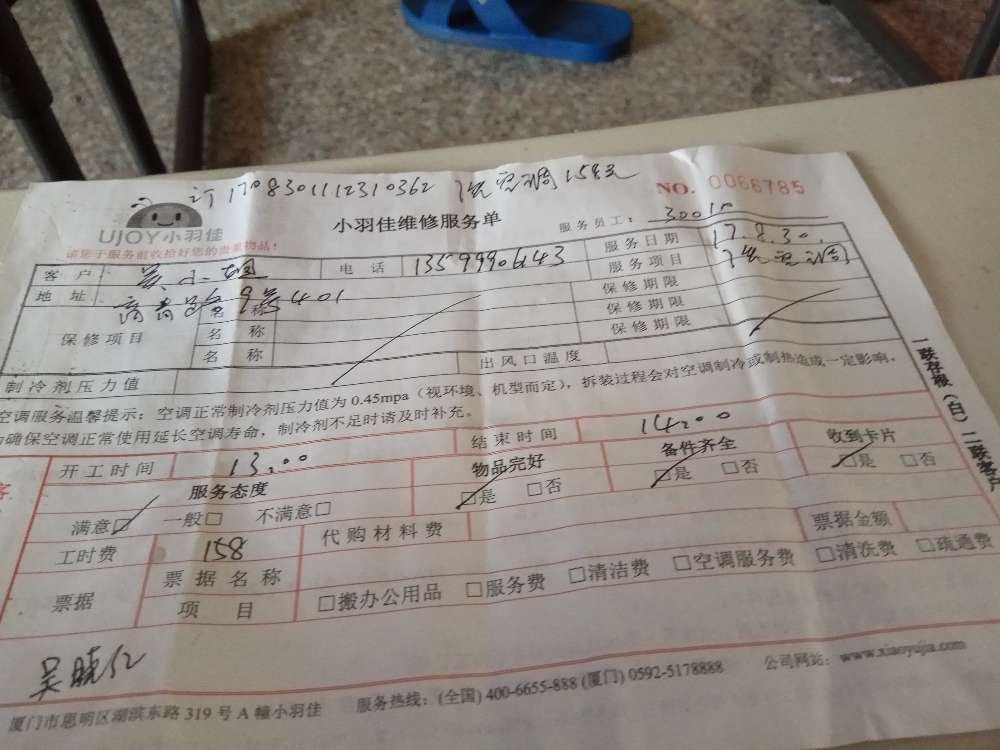 订 1708301112310362 洗空调158元
NO. 0066785
UJOY小羽佳
小羽佳维修服务单
服务员工:
请您于服务前收拾好您的贵重物品!
客户 吴小姐 电话 13599906143 服务日期 17.8.30.
地址 401 服务项目 洗空调
保修项目 名称 保修期限
名称 保修期限
名称 保修期限
制冷剂压力值 出风口温度
空调服务温馨提示:空调正常制冷剂压力值为0.45mpa(视环境、机型而定),拆装过程会对空调制冷或制热造成一定影响,
为确保空调正常使用延长空调寿命,制冷剂不足时请及时补充。
开工时间 13:00 结束时间 14:00
服务态度 物品完好 备件齐全 收到卡片
满意□ 一般□ 不满意□ □是 □否 □是 □否 □是 □否
工时费 158 代购材料费 票据金额
票据 票据名称 □搬办公用品 □服务费 □清洁费 □空调服务费 □清洗费 □疏通费
项目
吴晓红
厦门市思明区湖滨东路319号A幢小羽佳 服务热线:(全国)400-6655-888(厦门)0592-5178888 公司网站:www.xiaoyujia.com
一联存根(白)二联客户